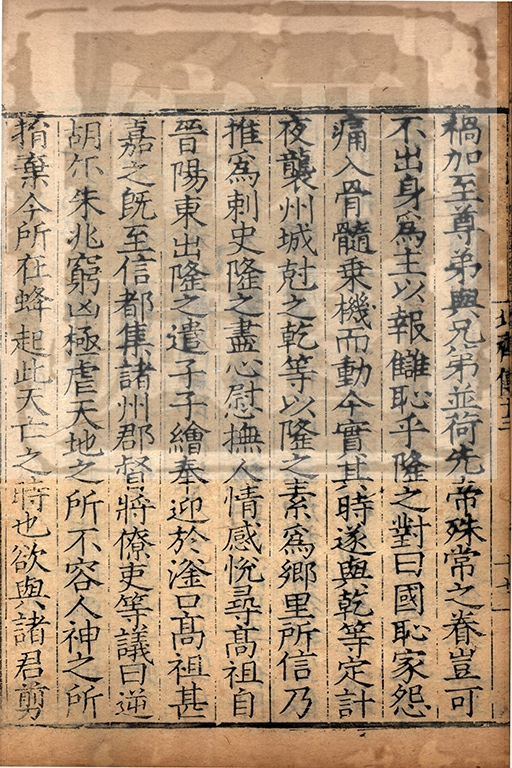 禍加至尊弟與兄弟並荷先帝殊常之眷豈可
不出身爲主以報讎恥乎隆之對曰國恥家怨
痛入骨髓乗機而動今實其時遂與乾等定計
夜襲州城尅之乾等以隆之素爲鄉里所信乃
推爲刺史隆之盡心慰撫人情感悅尋髙祖自
晉陽東出隆之遣子子繪奉迎於滏口髙祖甚
嘉之旣至信都集諸州郡督將僚吏等議曰逆
胡尒朱兆窮凶極虐天地之所不容人神之所
捐棄今所在蜂起此天亡之時也欲與諸君剪